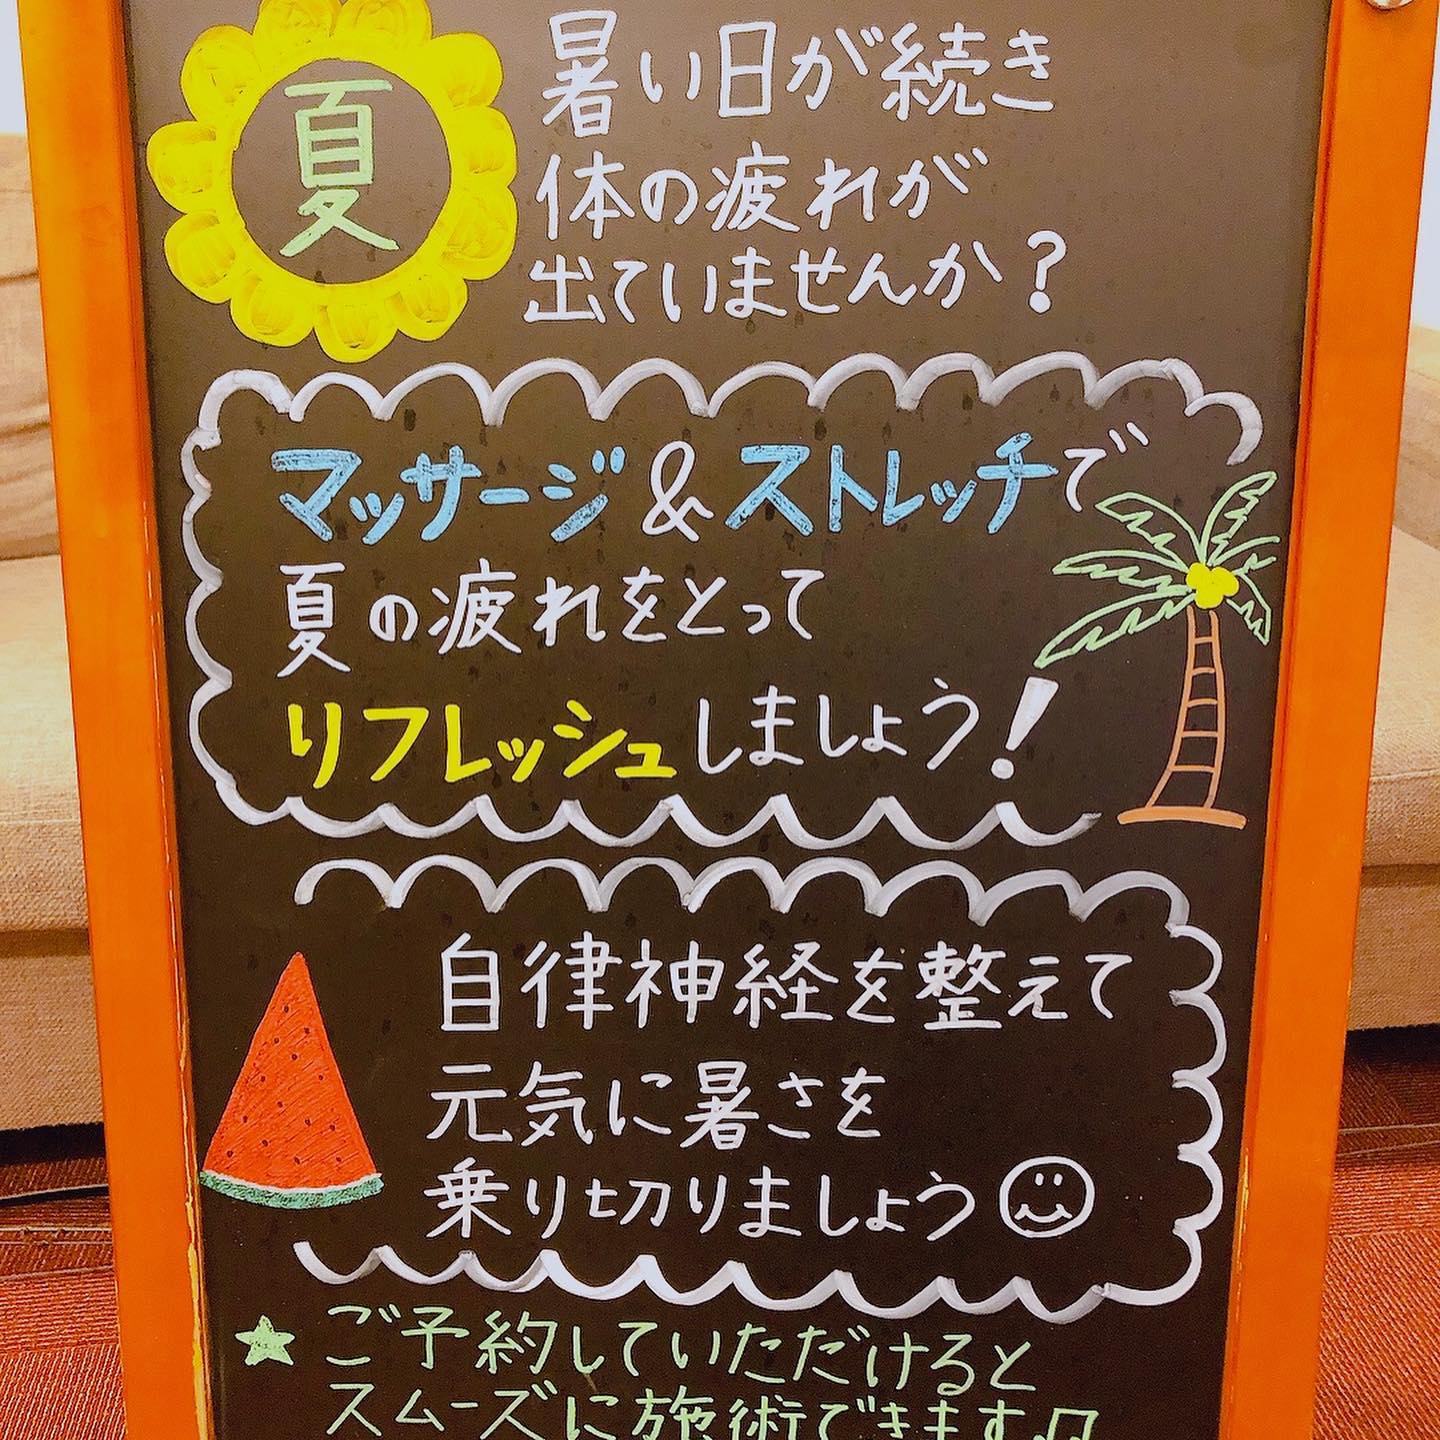 夏
暑い日が続き
体の疲れが
出ていませんか?
マッサージ&ストレッチで
夏の疲れをとって
リフレッシュしましょう!
自律神経を整えて
元気に暑さを
乗り切りましょう
★ご予約していただけると
スムーズに施術できます♫